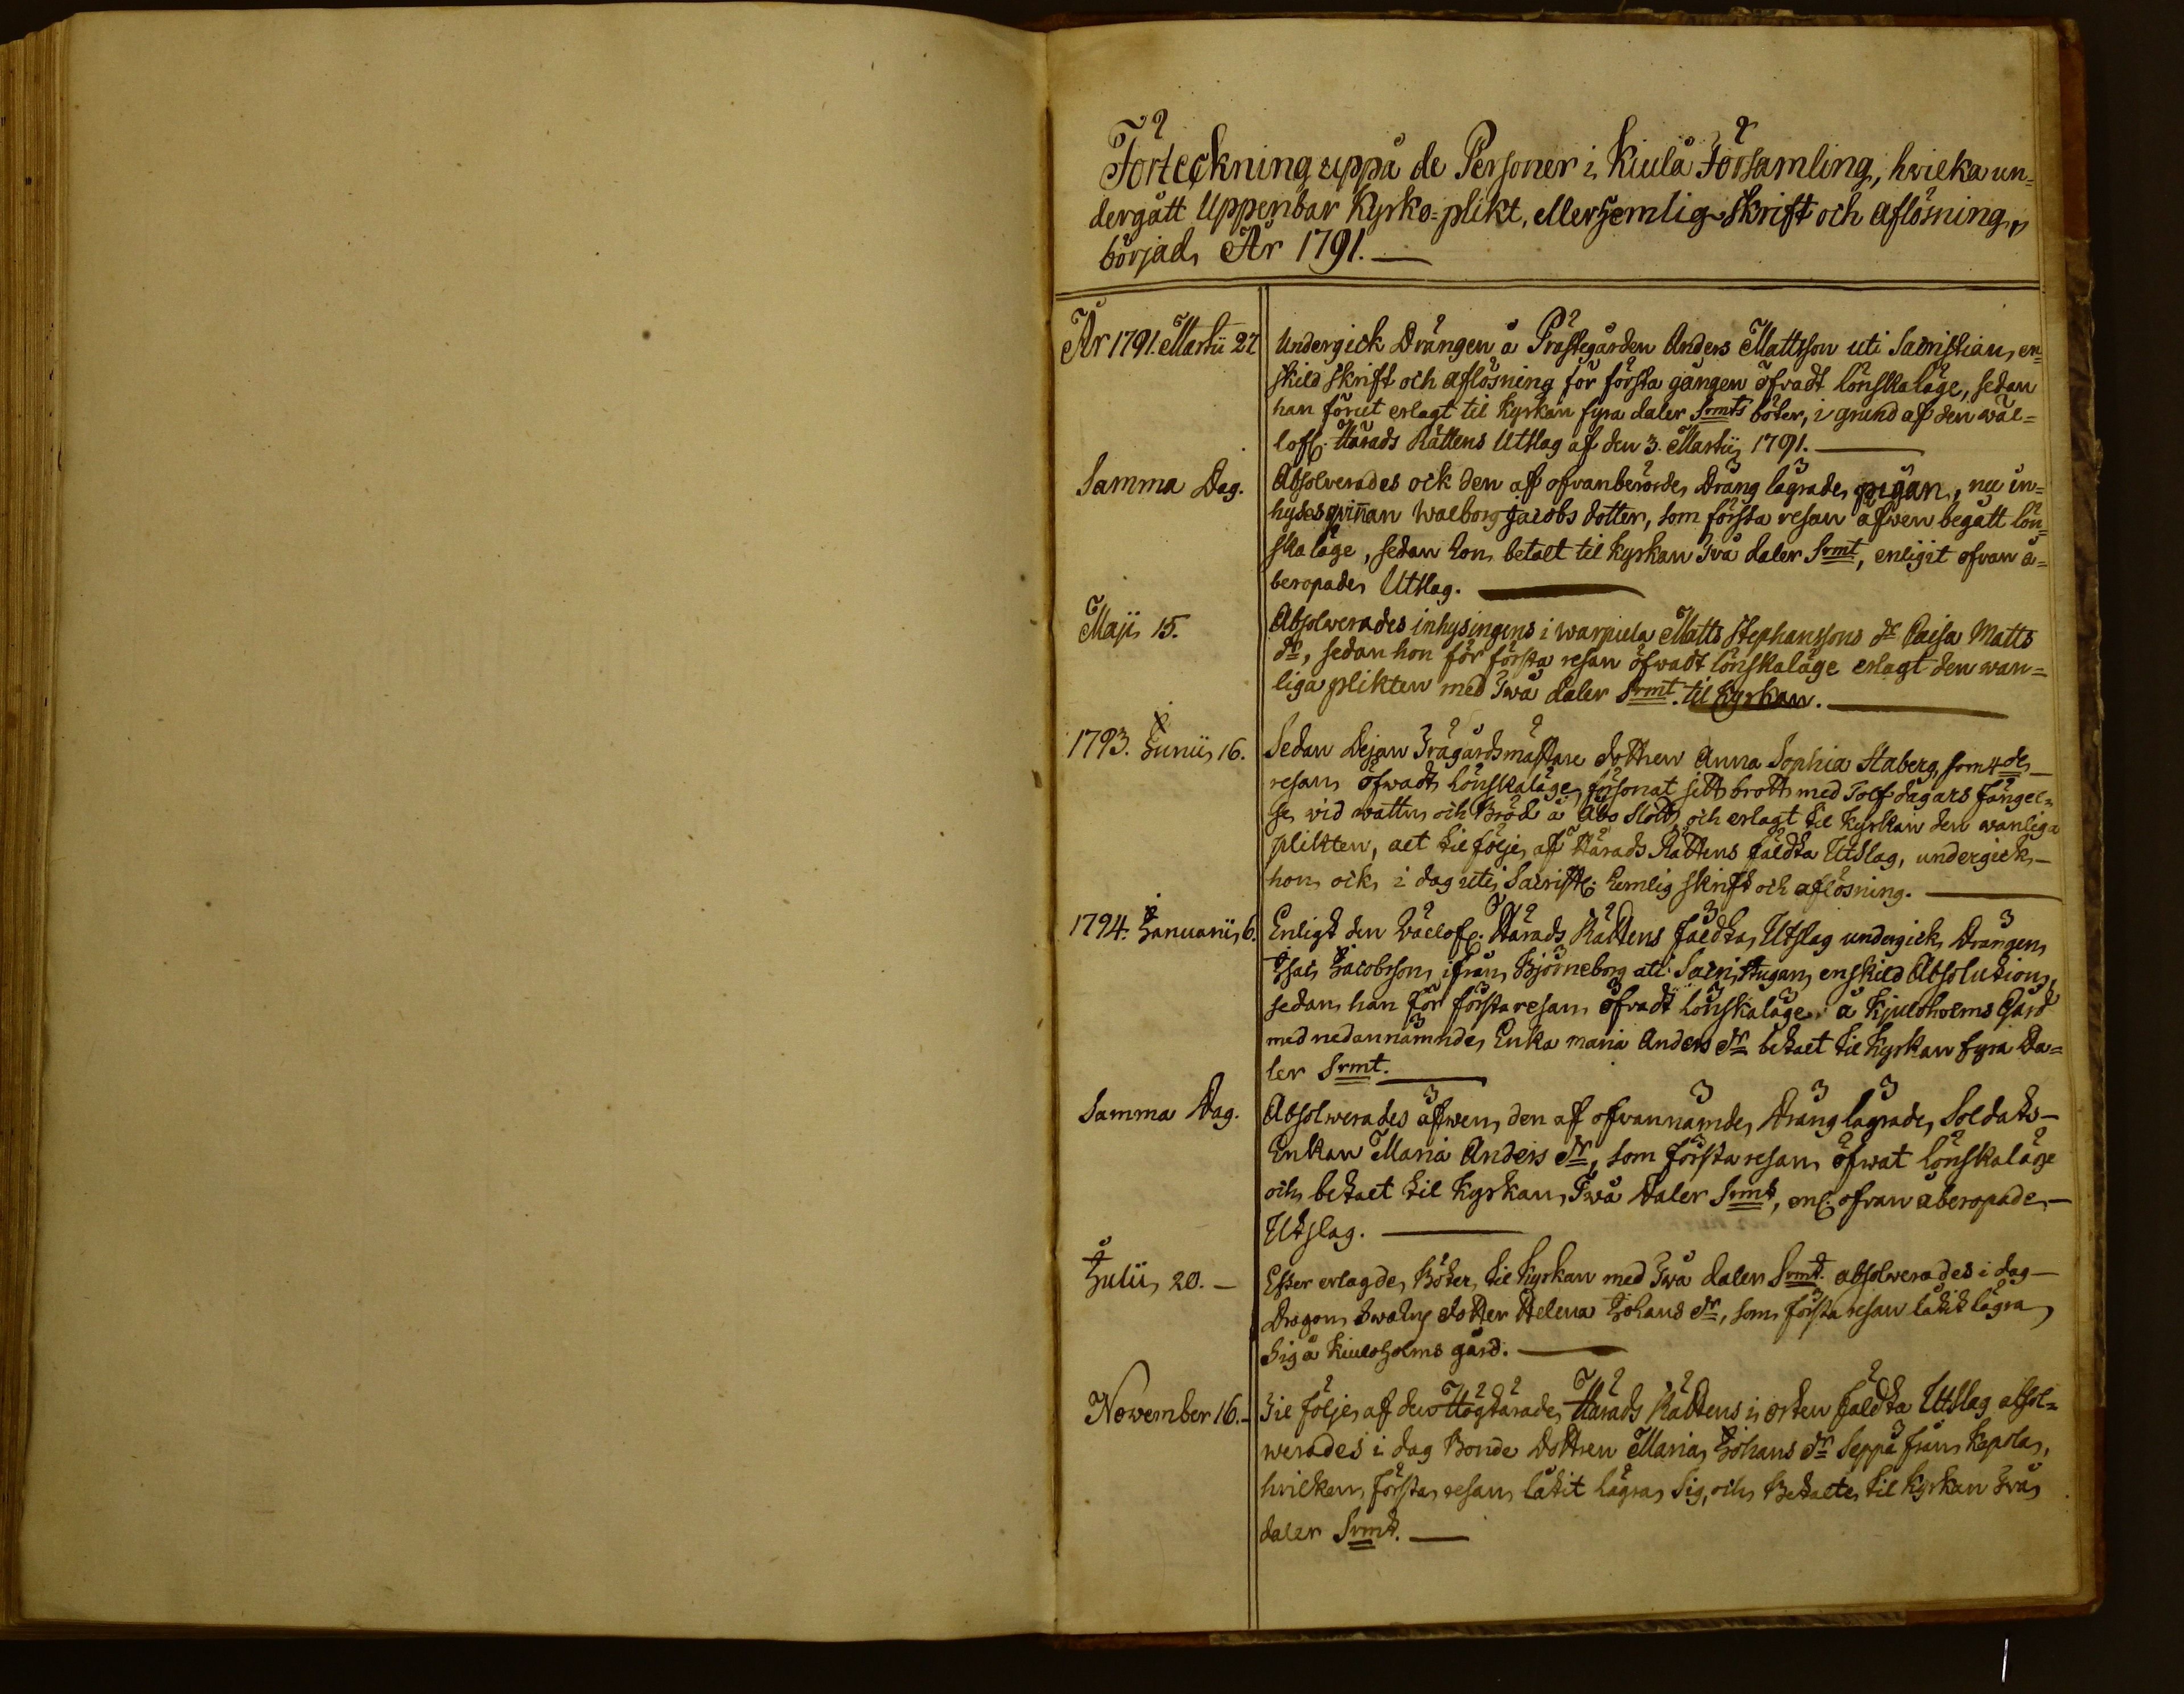 Förteckning uppå de Personer i Kiula Församling, hvilka un=
dergått Uppenbar Kyrko=plikt, eller hemlig skrift och aflösning,
börjad År 1791.
År 1791. Martii 27
Undergick Drängen å Prästegården Anders Mattsson uti Sacristian, en=
skild skrift och aflösning för första gången öfvadt lönskaläge, sedan
han förut erlagt til Kyrkan fyra daler Srmts böter, i grund af den wäl=
lofl. Härads Rättens Utslag af den 3. Martii 1791.
Samma Dag.
Absolverades ock den af ofvanberörde Dräng lägrade pigan, nu in=
hyses qvinnan Walborg Jacobs dotter, som första resan äfwen begått lön=
skaläge, sedan hon betalt til kyrkan Två daler Srmt, enligit ofvan å=
beropade Utslag.
Maji 15.
Absolverades inhysingens i Warpula Matts Stephanssons dr Caisa Matts
dr, sedan hon för första resan öfwadt lönskaläge erlagt den wan=
liga plikten med Twå daler Srmt. til Kyrkan.
1793. Junii 16.
Sedan Dejan Trägårdsmästare dottren Anna Sophia Staberg, som 4de
resan öfwadt lönskaläge, försonat sitt brott med Tolf dagars fängel=
se wid watten och Bröd å Åbo Slott, och erlagt til Kyrkan den wanliga
plikten, alt til följe af Härads Rättens fäldta Utslag, undergick
hon ock i dag uti Sacrist: hemlig skrift och aflösning.
1794. Januarii 6.
Enligt den Wällofl. Härads Rättens fäldta Utslag undergick Drängen
Isac Jacobsson ifrån Björneborg uti Sacristugan enskild Absolution,
sedan han för första resan öfvadt lönskaläge å Kjuloholms Gård
med nedannämnde Enka Maria Anders dr betalt til Kyrkan fyra Da=
ler Srmt.
Samma Dag.
Absolwerades äfwen den af ofvannämde Dräng lägrade Soldats-
Enkan Maria Anders dr, som första resan öfwat lönskaläge
och betalt til Kyrkan Twå Daler Srmt, enl. ofvan åberopade
Utslag.
Julii 20.
Efter erlagde Böter til Kyrkan med Twå daler Srmt. absolwerades i dag
Dragon dotter Helena Johans dr, som första resan låtit lägra
Sig å Kiuloholms gård.
November 16.
Til följe af den Högtärade Härads Rättens i orten fäldta Utslag absol=
werades i dag Bonde Dottren Maria Johans dr Seppä från Kepola,
hvilken första resan låtit lägra Sig, och Betalte til Kyrkan Twå
daler Srmt.